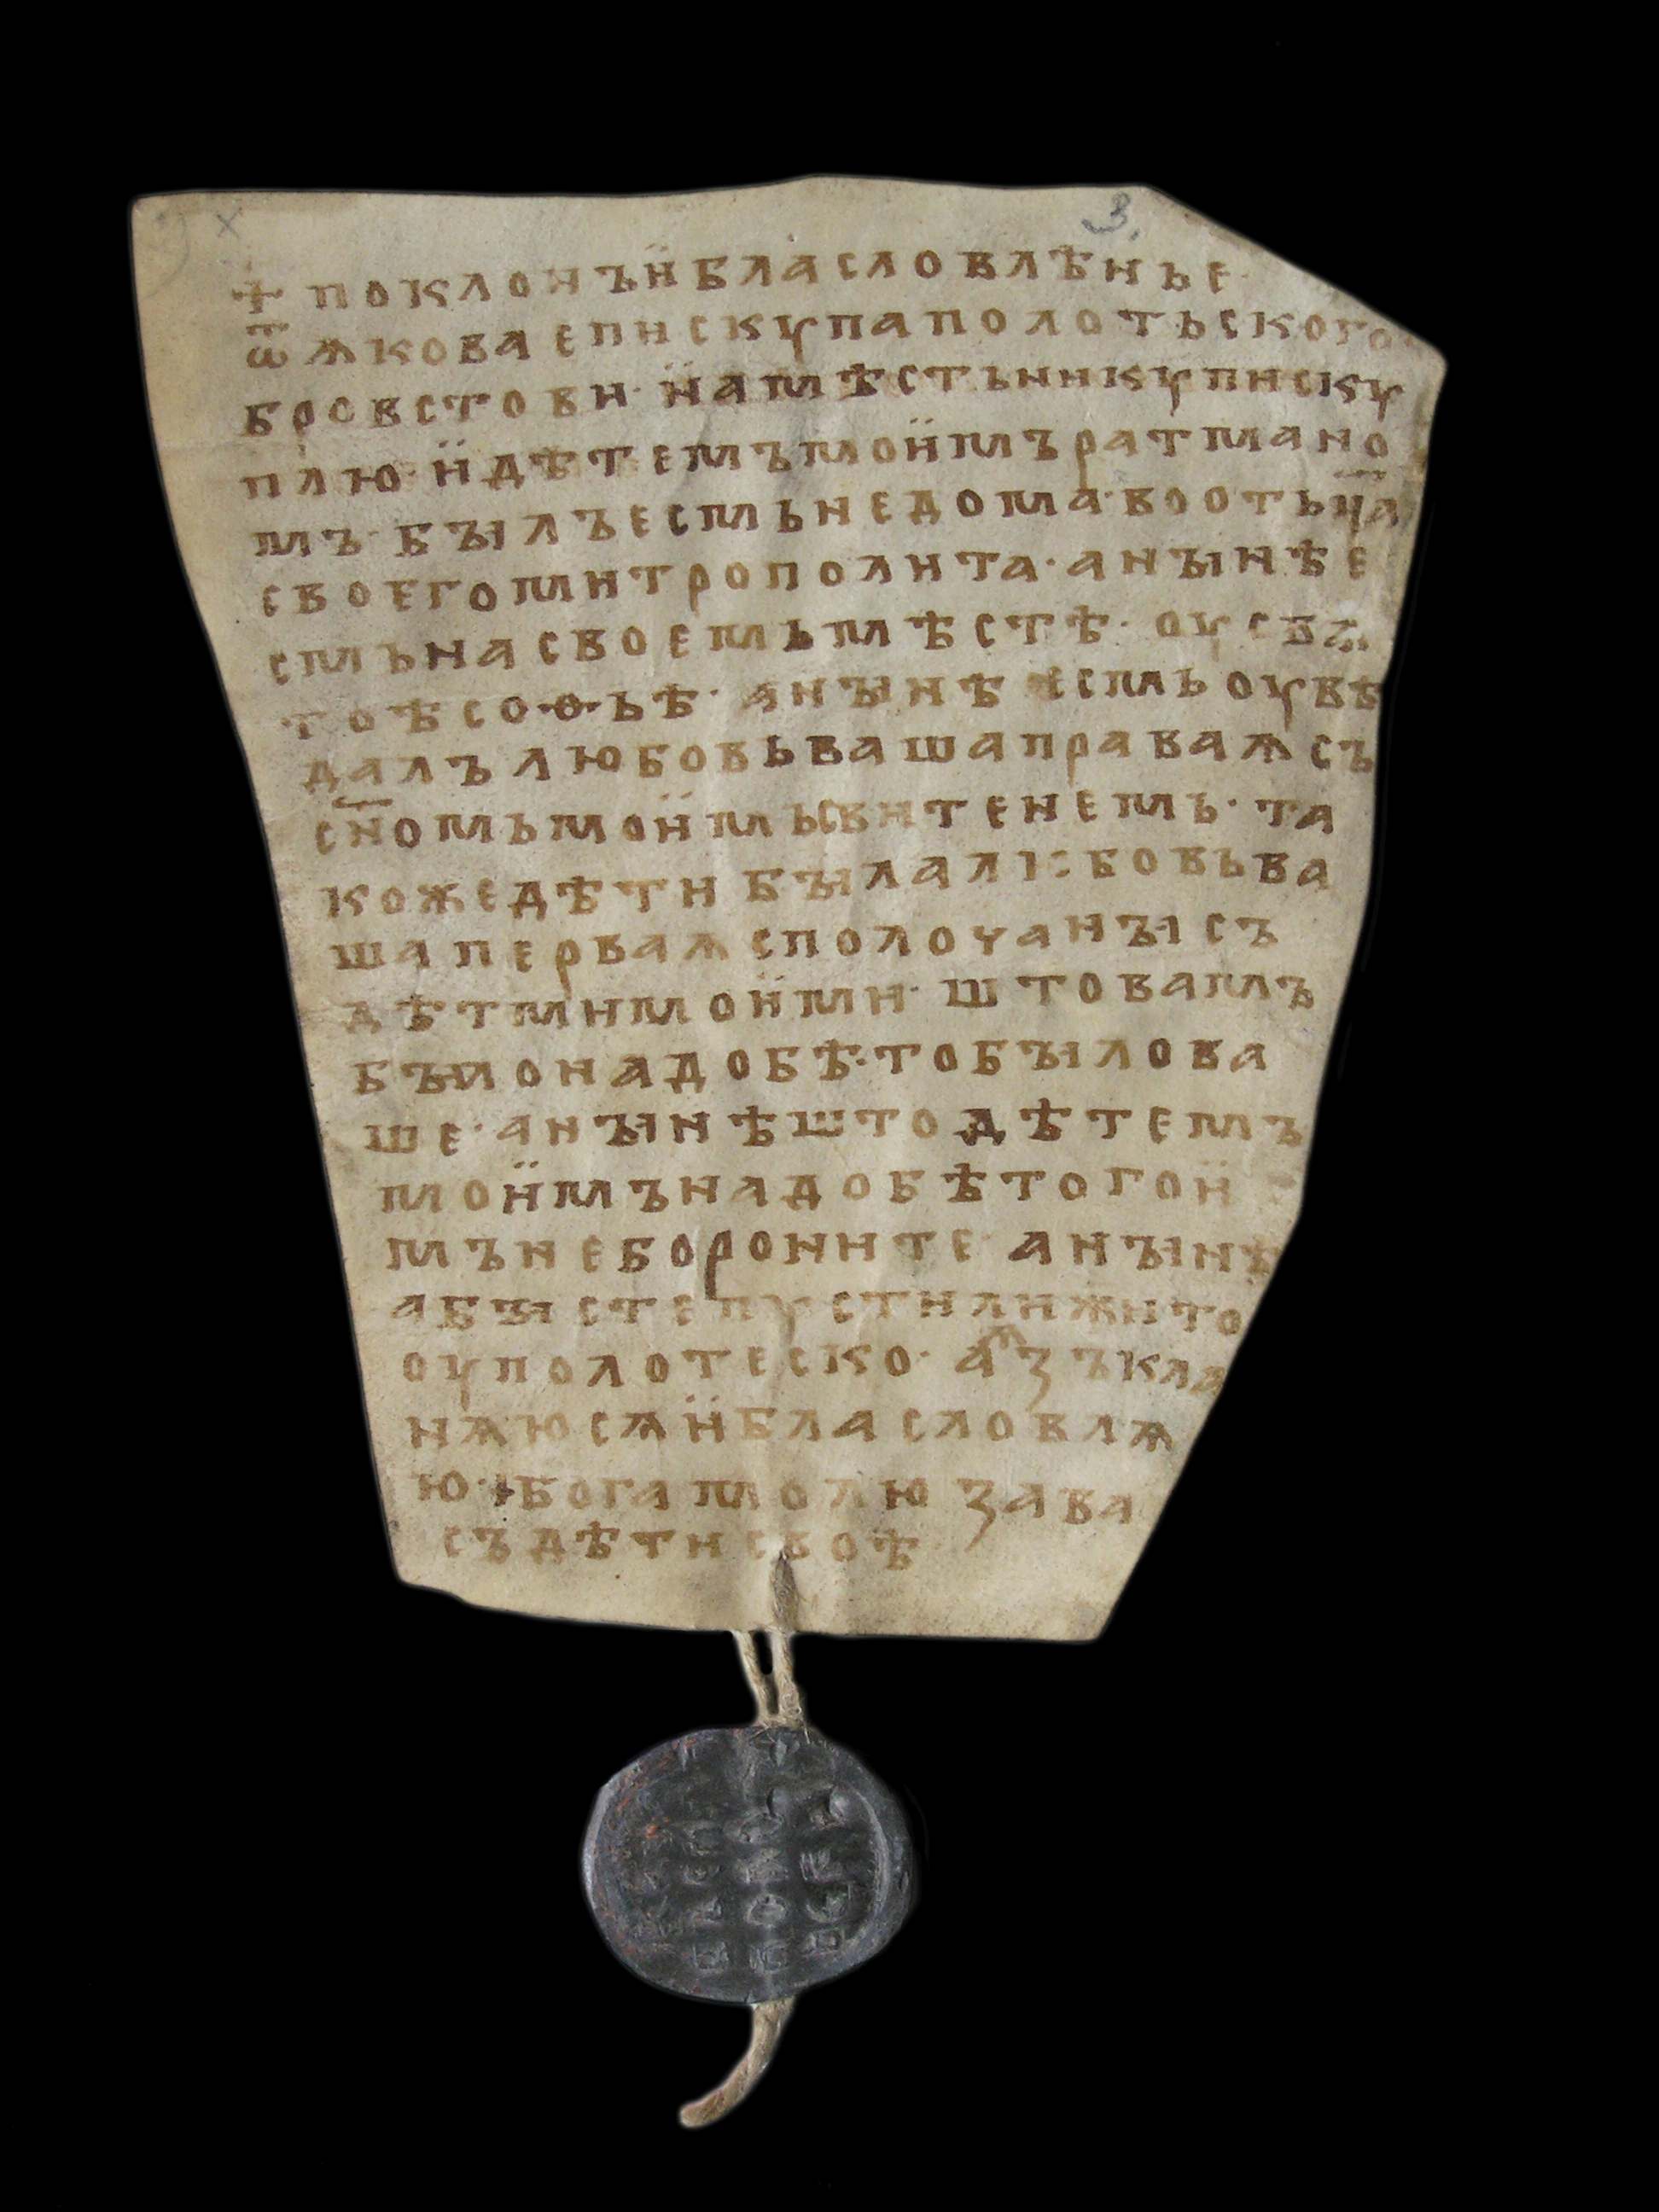 3.
+ поклонъ ӥ бласловлѣнье·
ѿ ѧкова епискꙋпа полотьского
бровстови· ӥамѣстьникꙋ пискꙋ
плю· ӥ дѣтемъ моӥмъ ратмано
мъ· былъ есмь не дома· во отьц҃а
своего митрополита· а нынѣ е
смь на своемь мѣстѣ· оу свѧ
тоѣ со·ѳ·ьѣ· а нынѣ есмь оувѣ
далъ любовь ваша праваѧ съ
сн҃омь моӥмь свитенемь· та
коже дѣти была любовь ва
ша перваѧ с полочаны съ
дѣтми моӥми· што вамъ
было надобѣ· то было ва
ше· а нынѣ што дѣтемъ
моӥмъ надобѣ того ӥ
мъ не бороните а нынѣ
абы сте пустили жито
оу полотеско· а ѧзъ кла
нѧюсѧ ӥ бласловлѧ
ю· и бога молю за ва
съ дѣти своѣ